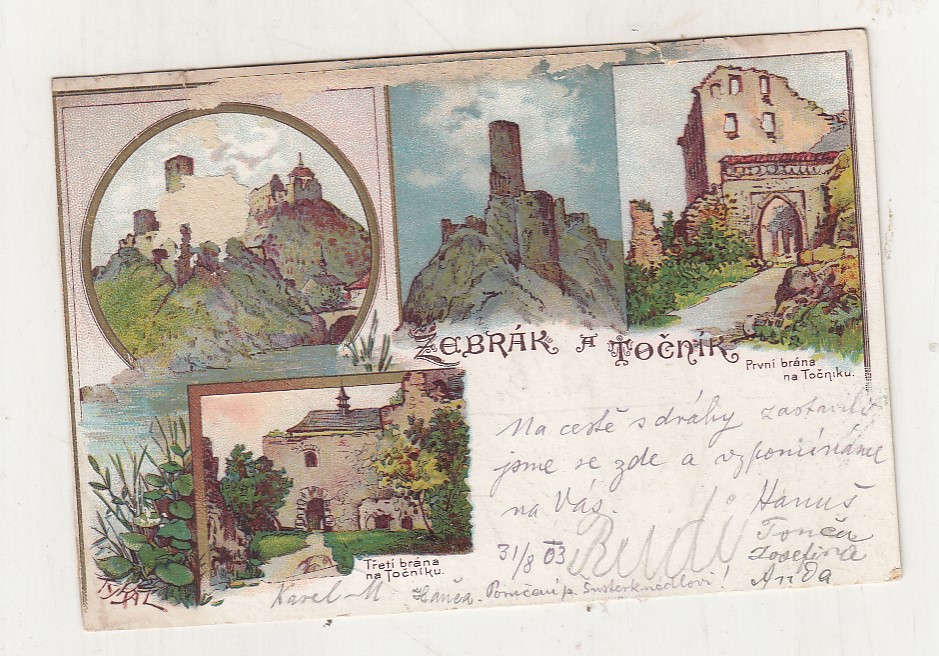 Žebrák a Točník
První brána
na Točníku.
Na cestě s dráhy zastavili
jsme se zde a vzpomínáme
na Vás. Hanuš
Tonča
31/8 03 Rudi Josefina
Anda
Třetí brána
na Točníku.
Karel M Hanča. Poručení p.